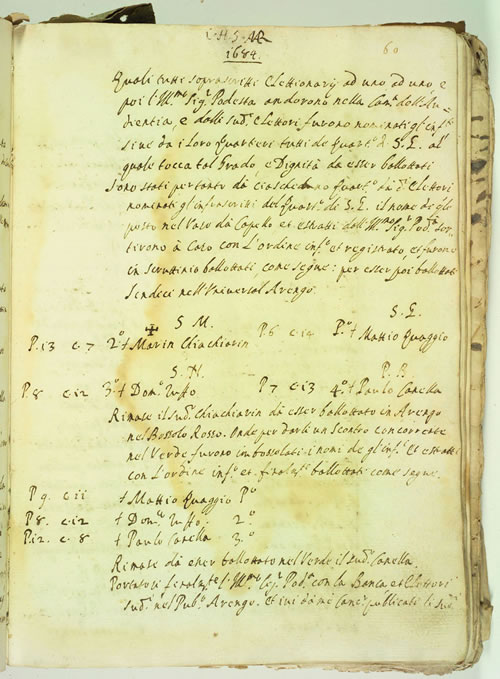 I H S M
1684.
60
Quali tutti soprascritti Elettionarij ad uno ad uno, e
poi l'Ill.mo Sig.r Podestà andorono nella Cam.a dell'Au=
dientia, e dalli sud.i Elettori furono nominati gl'inf.ti
sine da i loro Quartieri tutti de Quart.o di S. E. al
quale tocca tal Grado, e Dignità da esser ballottati
Sono stati pertanto dà ciaschedauno Quart.o da d.i Elettori
nominati gl'infrascritti del Quart.o di S. E. il nome de q.li
posto nel Vaso dà Capello et estratti dall'Ill.mo Sig.r Pod.tà sor
tirono à Caso con l'ordine inf.o et registrato, et furono
in scruttinio ballottati come segue: per esser poi ballottati
Sindeci nell'Universal Arengo.
S. M. S. E.
P. 13 c. 7 2.o + Marin Chiachiarin P. 6 c. 14 P.o + Mattio Quaggio
S. N. P. B.
P. 8 c. 12 3.o + Dom.o Tuffo P. 7 c. 13 4.o + Paulo Canella
Rimase il Sud.o Chiachiarin di esser ballottato in Arengo
nel Bossolo Rosso. Onde per darli un Scontro concorrente
nel Verde furono imbossolati i nomi de gl'inf.ti Et estratti
con l'ordine inf.o et ballottati come segue.
P. 9. c. 11 + Mattio Quaggio P.o
P. 8. c. 12 + Dom.o Tuffo 2.o
P. 12. c. 8 + Paulo Canella 3.o
Rimase dà esser ballottato nel Verde il sud.o Canella.
l'Ill.mo Sig.r Pod.a con la Banca et Elettori
sud.i nel Pub.o Arengo. et ivi da me Canc.r publicati li sud.i